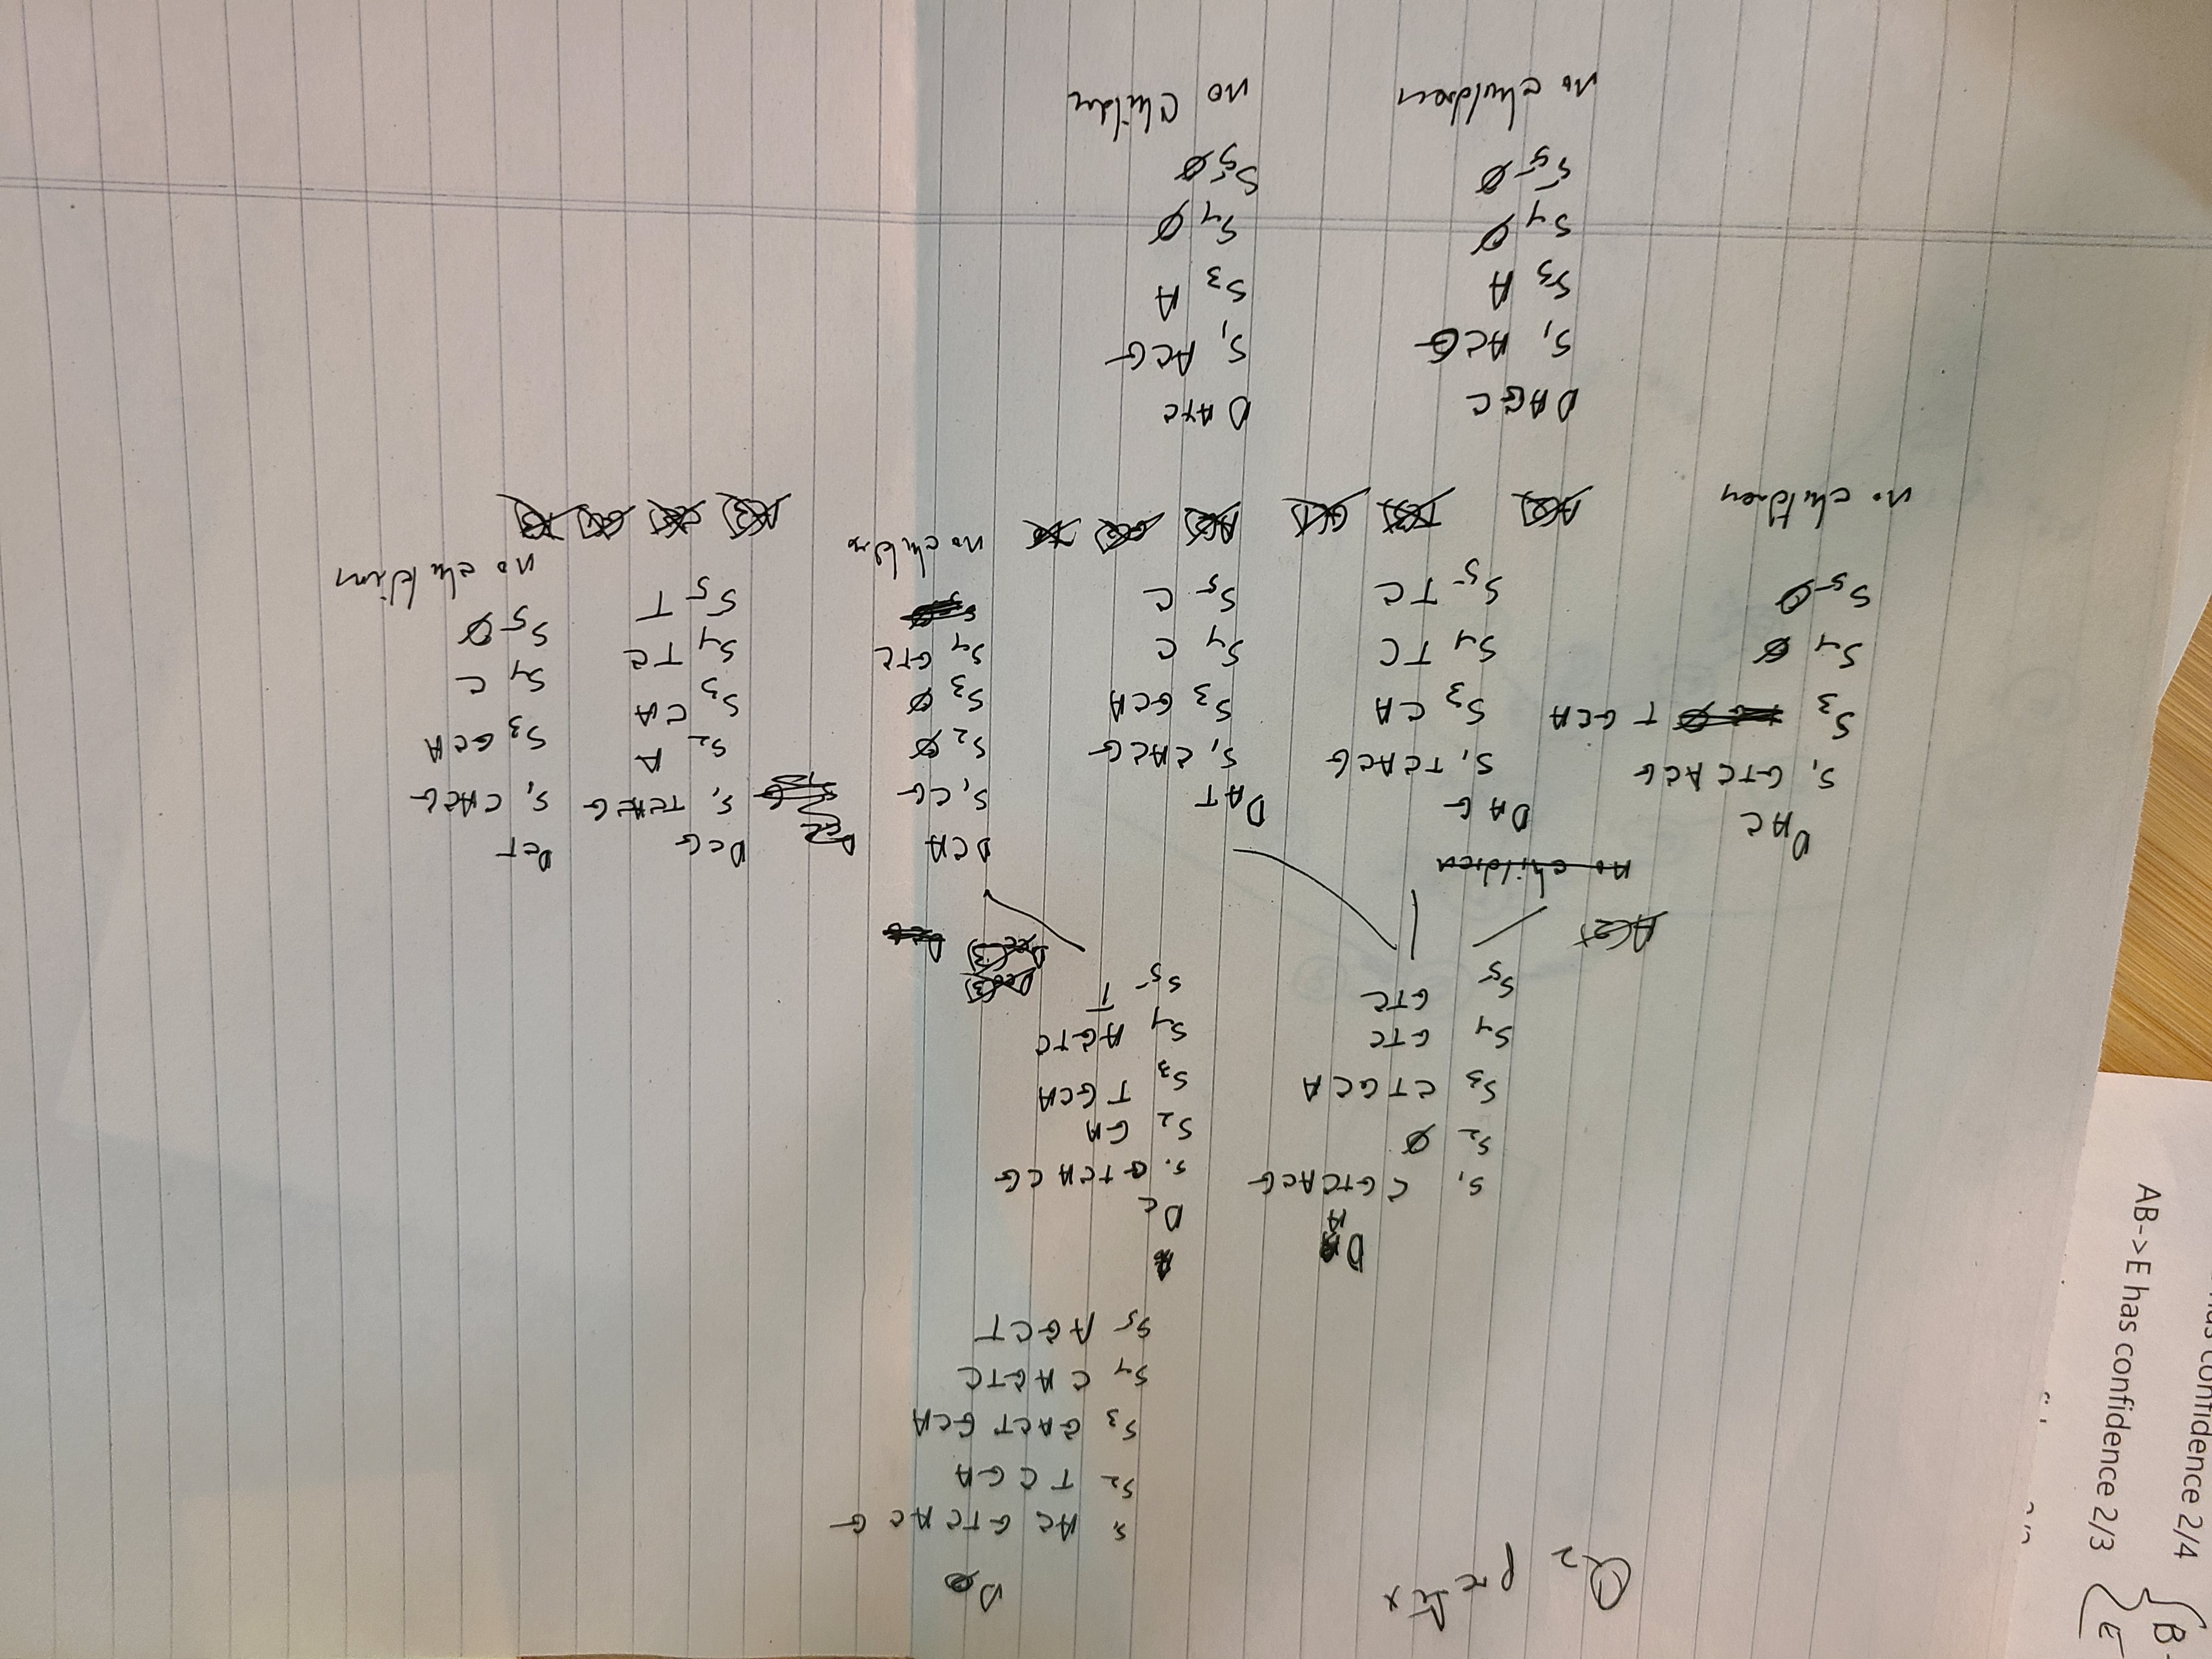 Q2 prefix
DØ
S1 AC GTC AC G
S2 T C GA
S3 GACT GCA
S4 C AGTC
S5 AGCT
DA
S1 C GTCACG
S2 Ø
S3 CTGCA
S4 GTC
S5 GTC
DC
S1 GTCACG
S2 GA
S3 TGCA
S4 AGTC
S5 T
A(2)
no children
DAC
S1 GTCACG
S3 TGCA
S4 Ø
S5 Ø
no children
DAG
S1 TCACG
S3 CA
S4 TC
S5 TC
DAT
S1 CACG
S3 GCA
S4 C
S5 C
DCA
S1 CG
S2 Ø
S3 Ø
S4 GTC
no children
DCG
S1 TCACG
S2 A
S3 CA
S4 TC
S5 T
DCT
S1 CACG
S3 GCA
S4 C
S5 Ø
no children
DAGC
S1 ACG
S3 A
S4 Ø
S5 Ø
no children
DATC
S1 ACG
S3 A
S4 Ø
S5 Ø
no children
AB->E has confidence 2/3
has confidence 2/4